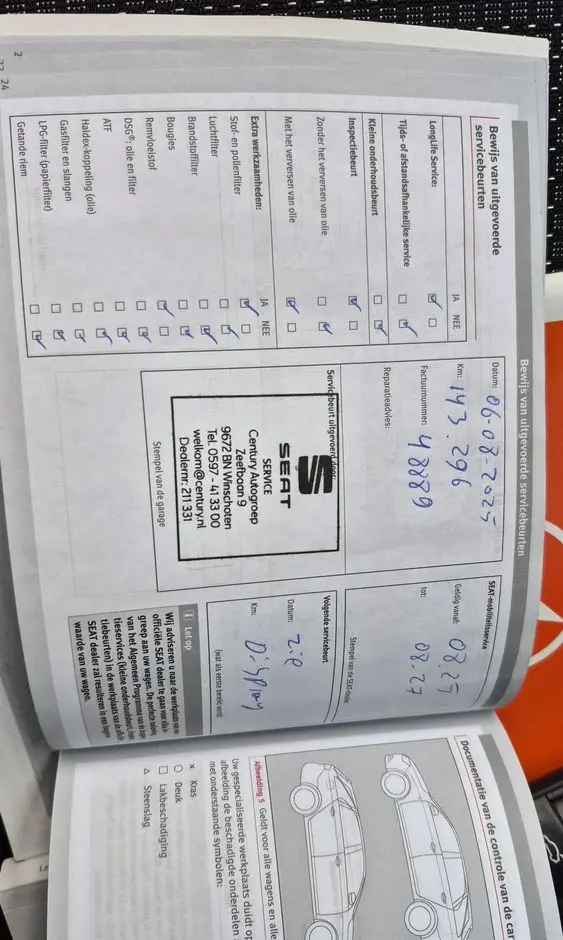 Bewijs van uitgevoerde servicebeurten
Bewijs van uitgevoerde
servicebeurten
JA NEE
LongLife Service:
Tijds- of afstandsafhankelijke service
Kleine onderhoudsbeurt
Inspectiebeurt
Zonder het verversen van olie
Met het verversen van olie
Extra werkzaamheden: JA NEE
Stof- en pollenfilter
Luchtfilter
Brandstoffilter
Bougies
Remvloeistof
DSG®: olie en filter
ATF
Haldex-koppeling (olie)
Gasfilter en slangen
LPG-filter (papierfilter)
Getande riem
Datum: 06-08-2025
Km: 143.296
Factuurnummer: 48889
Reparatieadvies:
Servicebeurt uitgevoerd door:
SEAT
SERVICE
Century Autogroep
Zeefbaan 9
9672 BN Winschoten
Tel. 0597 - 41 33 00
welkom@century.nl
Dealernr: 211 331
Stempel van de garage
SEAT-mobiliteitsservice
Geldig vanaf: 08.25
tot: 08.27
Stempel van de SEAT-dealer
Volgende servicebeurt
Datum: zie
Km: Display
(wat als eerste bereikt wordt)
Let op
Wij adviseren u naar de werkplaats van een
officiële SEAT dealer te gaan voor elke in-
greep aan uw wagen. De perfecte
van het Algemeen Programma van de
tieservices (kleine onderhoudsbeurt,
tiebeurten) in de werkplaats van de
SEAT dealer zal resulteren in een hogere
waarde van uw wagen.
2
24
Documentatie van de controle van de car
Afbeelding 5 Geldt voor alle wagens en alle
Uw gespecialiseerde werkplaats duidt op
afbeelding de beschadigde onderdelen
met onderstaande symbolen:
× Kras
○ Deuk
□ Lakbeschadiging
△ Steenslag